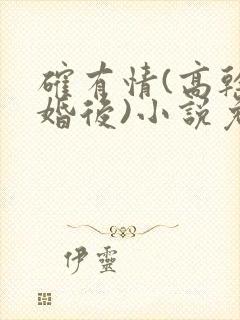 確有情(高幹
婚後)小說
伊靈